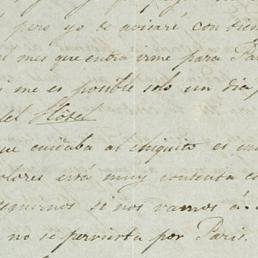 pero yo te avisaré con tiem
mes que entra irme para Pa
i me es posible solo un dia
del Hôtel
que cuidaba al chiquito es in
olores está muy contenta c
seguirnos si nos vamos á
no se pervierta por Paris.